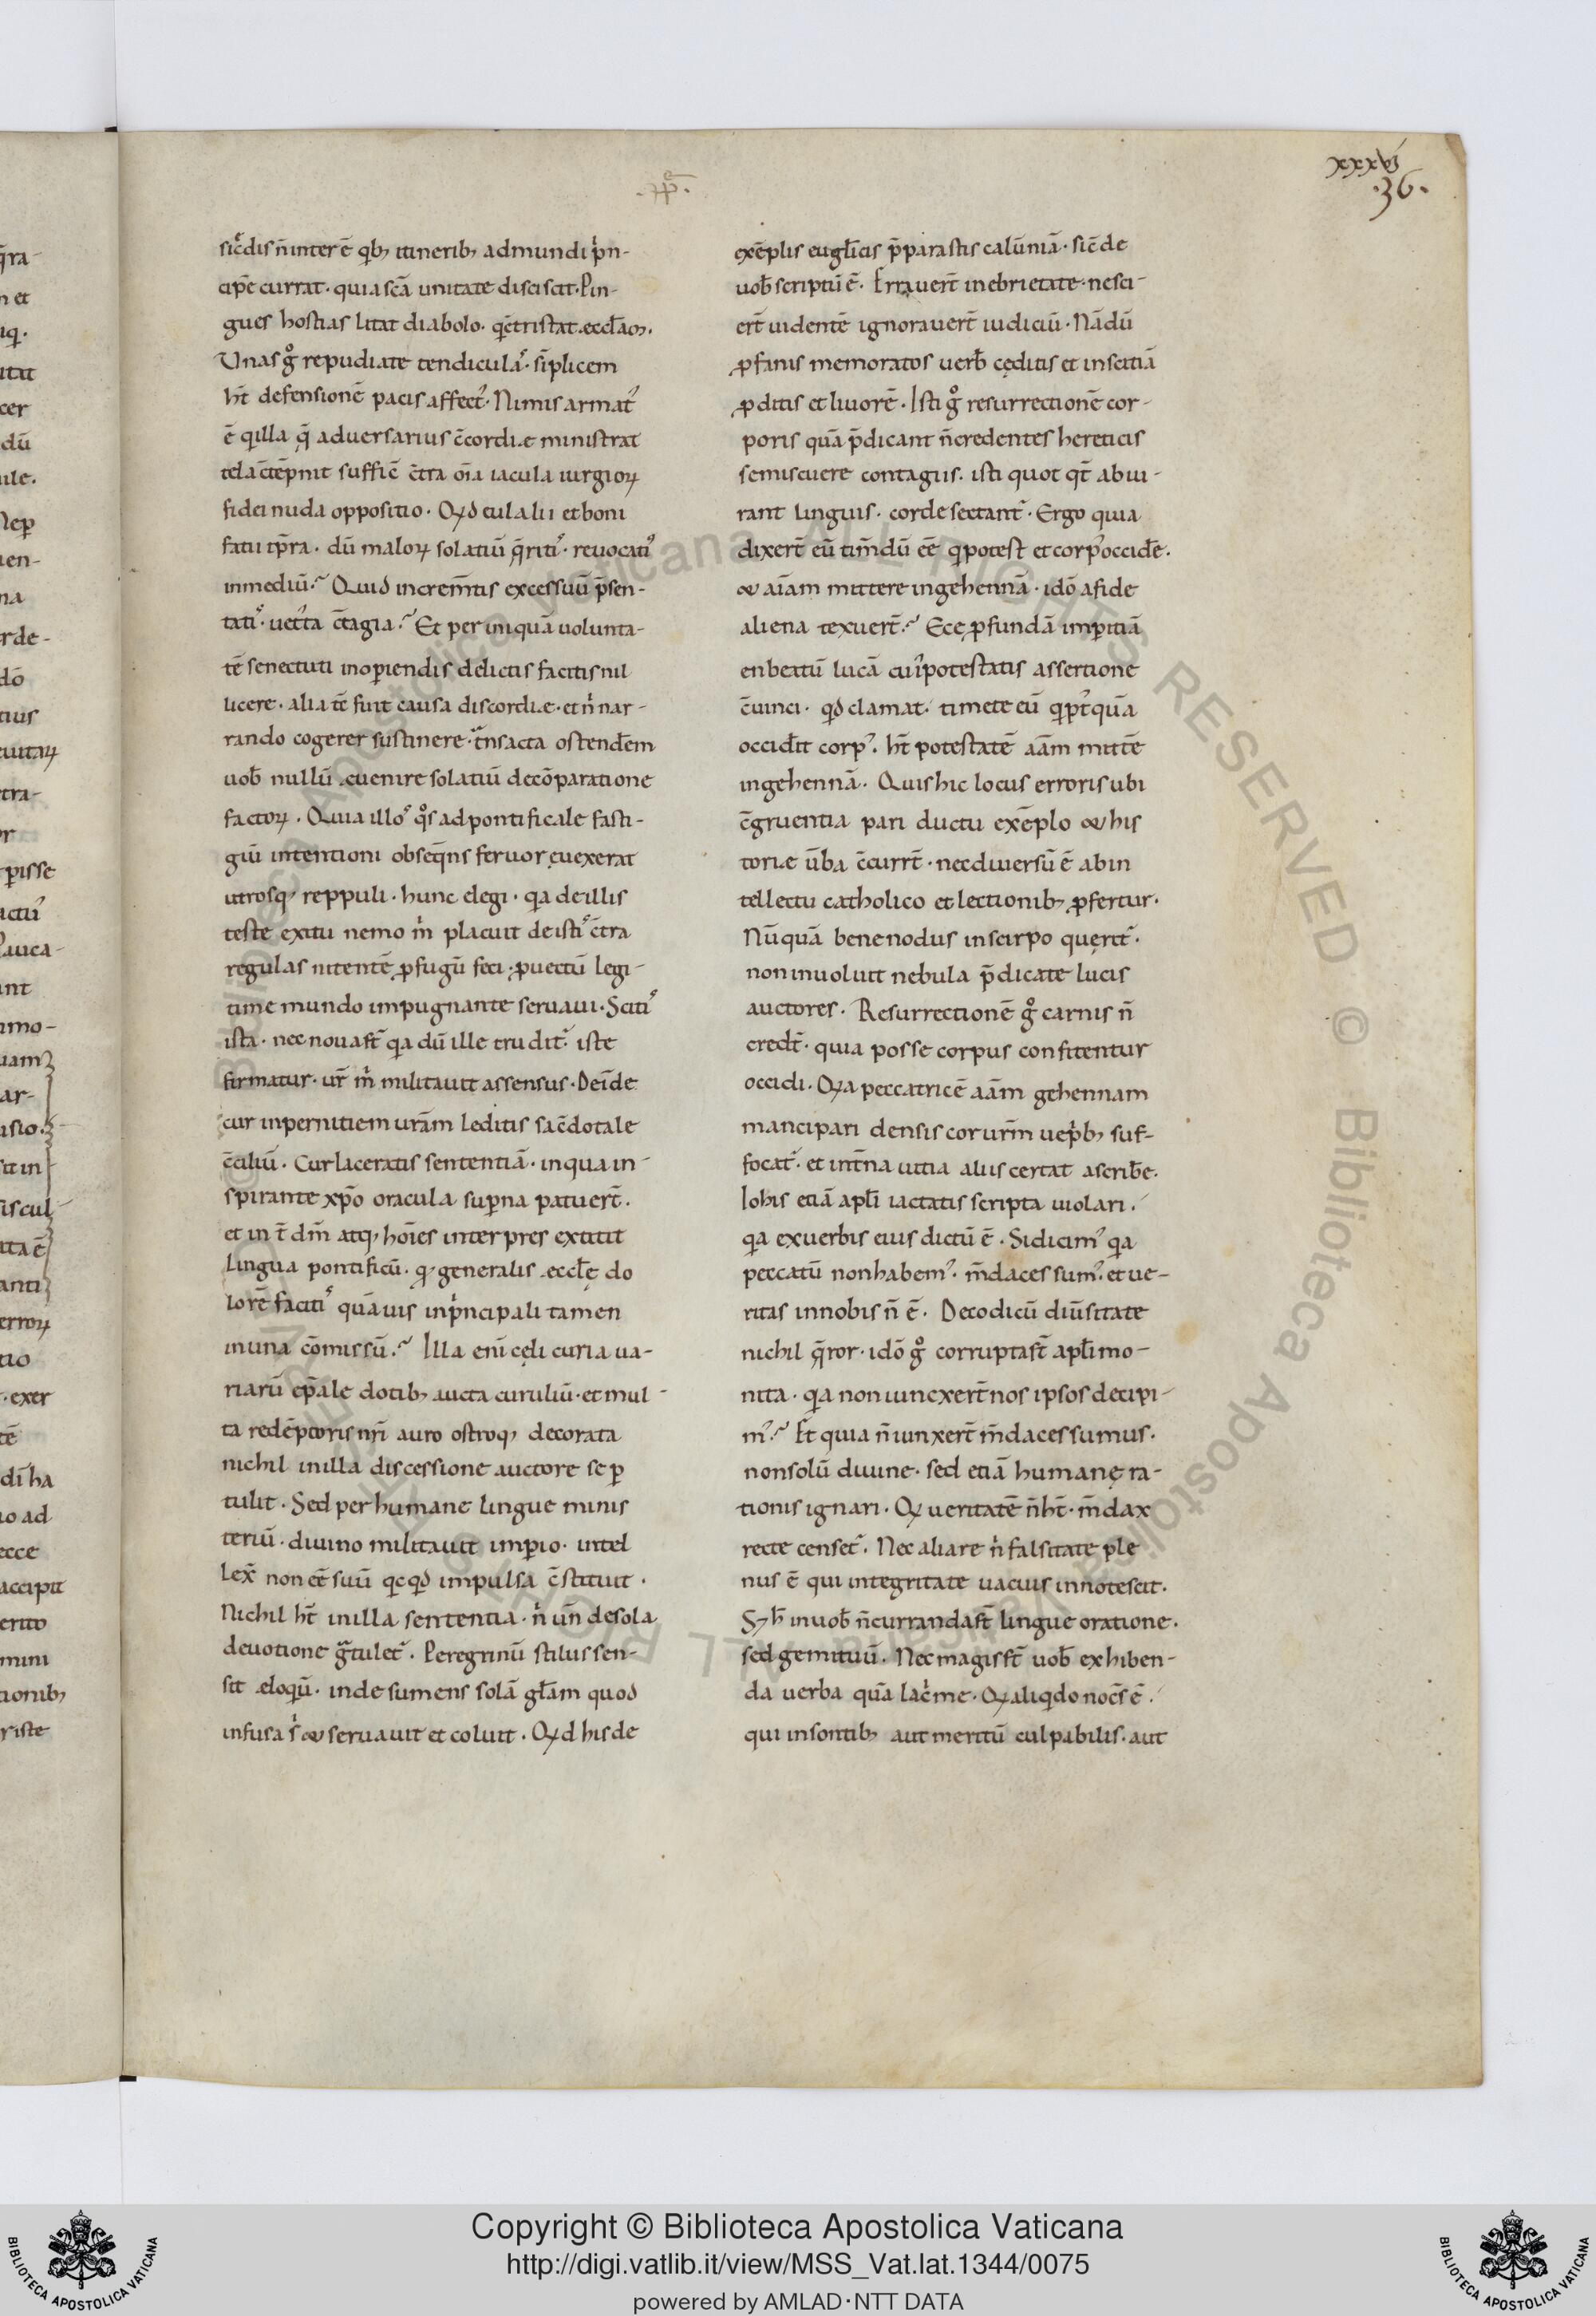 xxxvi
.36.
sic̄dis n̄ inter ē qb; itinerib; ad mundi pͥn-
cipē currat. quia sc̄a unitate disciscit. Pin-
gues hostias litat diabolo. q̄ c̄tristat eccl̄am.
Unas gͦ repudiate tendicula. sīplicem
hn̄t defensionē pacis affect᷒. Nimis armat᷒
ē q illa q̄ adversarius c̄cordie ministrat
tela c̄tēpnit suffic̄ c̄tra oīa iacula iurgioꝝ
fidei nuda oppositio. Qd cul alii et boni
fatu ip̄ra. dū maloꝝ solatiū q̄ritis. revocatis
in mediū. Quid increm̄tis excessuū p̄sen-
tatis. vet᷒ta c̄tagia. Et per iniquā volunta-
tē senectuti inopiendis delictis facitis nil
licere. alia tē fuit causa discordie. et n̄ nar-
rando cogerer sustinere. tͣnsacta ostendēm
uob̄ nullū evenire solatiū decōparatione
factoꝝ. Quia illos qͦs ad pontificale fasti-
giū intentioni obseq̄ns fervor evexerat
utrosq; reppuli. hunc elegi. qa de illis
teste exitu nemo mͥ placuit de istis c̄tra
regulas nitentē ꝓfugū feci. ꝓvectū legi-
time mundo impugnante servavi. Scitis
ista. nec nova st̄ qa dū ille trudit᷒ iste
firmatur. ur̄ mͥ militavit assensus. Deīde
cur in pernitiem uram̄ leditis sac̄dotale
c̄ciliū. Cur laceratis sententiā. in qua in-
spirante xp̄o oracula sup̄na patuer̄t.
et in t̄ dm̄ atq; hoīes interpres extitit
lingua pontificū. q generalis eccl̄ę do
lorē facitis quāvis in pͥncipali tamen
in una cōmissū. Illa enī cęli curia va-
riarū ep̄ale dotib; aucta curuliū. et mul-
ta redēptoris nr̄i auro ostroq; decorata
nichil in illa discessione auctore se ꝑ
tulit. Sed per humane lingue minis
teriū. divino militavit imꝑio. intel
lex̄ non eē suū qcqd impulsa c̄stituit.
Nichil hn̄t in illa sententia. nͥ un̄ de sola
devotione gͣtulet᷒. Peregrinū stilus sen-
sit eloqū. inde sumens solā gl̄am quod
infusa sͥ & servavit et coluit. Qd his de
exēplis eugl̄icis p̄parastis calūniā. sic̄ de
uob̄ scriptū ē. Erraver̄t in ebrietate. nesci-
er̄t uidentē ignoraver̄t iudiciū. Nā dū
ꝓfanis memoratos verb̄ cęditis et inscitiā
ꝓditis et livorē. Isti gͦ resurrectionē cor-
poris quā p̄dicant n̄ credentes hereticis
se miscuere contagiis. isti quot qt̄ abiu-
rant linguis. corde sectant᷒. Ergo quia
dixer̄t eū tim̄dū eē q potest et corp᷒ occidēre.
& aīam mittere in gehennā. idō a fide
aliena texuer̄t. Ecę ꝓfundā imꝑitiā
en beatū lucā cui᷒ potestatis assertione
c̄vinci. qd clamat. timete eū q pt᷒quā
occidīt corp᷒. hn̄t potestatē aām mittē
in gehennā. Quis hic locus erroris ubi
c̄gruentia pari ductu exēplo & his
torie v̄ba c̄curr̄t. nec diversū ē ab in
tellectu catholico et lectionib; ꝓfertur.
Nūquā bene nodus in scirpo querit᷒.
non involvit nebula p̄dicate lucis
auctores. Resurrectionē gͦ carnis n̄
credt̄. quia posse corpus confitentur
occidi. Qa peccatricē aām gehennam
mancipari densis cor urm̄ vep̄b; suf-
focat᷒. et int̄na vitia aliis certat ascribēre.
Iohis etiā apl̄i iactatis scripta violari.
qa ex verbis eius dictū ē. Si dicim᷒ qa
peccatū non habem᷒. m̄daces sum᷒. et ve-
ritas in nobis n̄ ē. De codicū div̄sitate
nichil q̄ror. idō gͦ corrupta st̄ apl̄i mo-
nita. qa non iunxer̄t nos ipsos decipi-
m᷒. Et quia n̄ iunxer̄t m̄daces sumus.
non solū divine. sed etiā humanę ra-
tionis ignari. Q veritatē n̄ ht̄. m̄dax
recte censet᷒. Nec aliare nͥ falsitate ple
nus ē qui integritate vacuus innotescit.
S; h̄ in uob̄ n̄ curranda st̄ lingue oratione.
sed gemituū. Nec magis st̄ uob̄ exhiben-
da verba quā lac̄me. Q aliqdo noc̄s ē.
qui insontib; aut meritū culpabilis. aut
Copyright © Biblioteca Apostolica Vaticana
http://digi.vatlib.it/view/MSS_Vat.lat.1344/0075
powered by AMLAD·NTT DATA